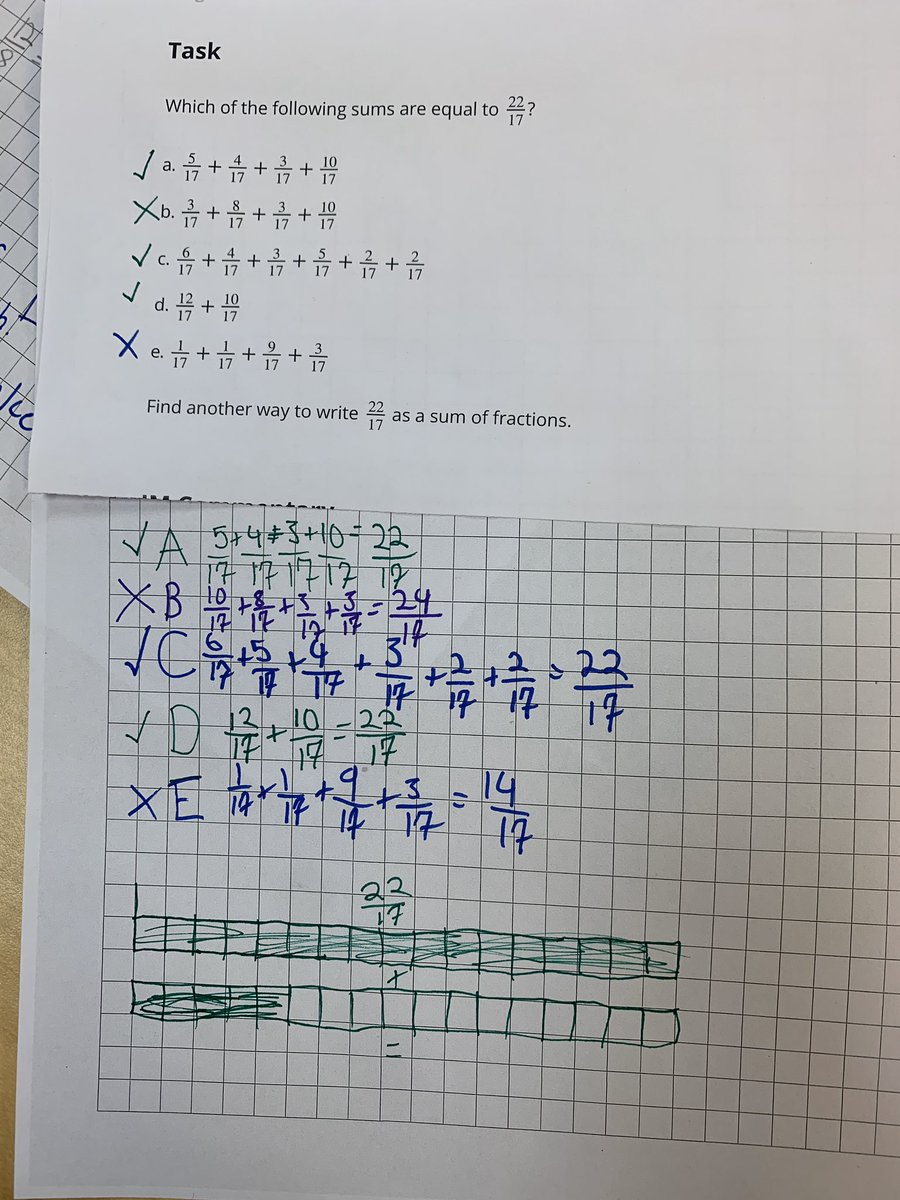 Task
Which of the following sums are equal to 22/17?
√ a. 5/17 + 4/17 + 3/17 + 10/17
X b. 3/17 + 8/17 + 3/17 + 10/17
√ c. 6/17 + 4/17 + 3/17 + 5/17 + 2/17 + 2/17
√ d. 12/17 + 10/17
X e. 1/17 + 1/17 + 9/17 + 3/17
Find another way to write 22/17 as a sum of fractions.
√ A 5/17 + 4/17 + 3/17 + 10/17 = 22/17
X B 10/17 + 8/17 + 3/17 + 3/17 = 24/17
√ C 6/17 + 5/17 + 4/17 + 3/17 + 2/17 + 2/17 = 22/17
√ D 12/17 + 10/17 = 22/17
X E 1/17 + 1/17 + 9/17 + 3/17 = 14/17
22/17
+
=